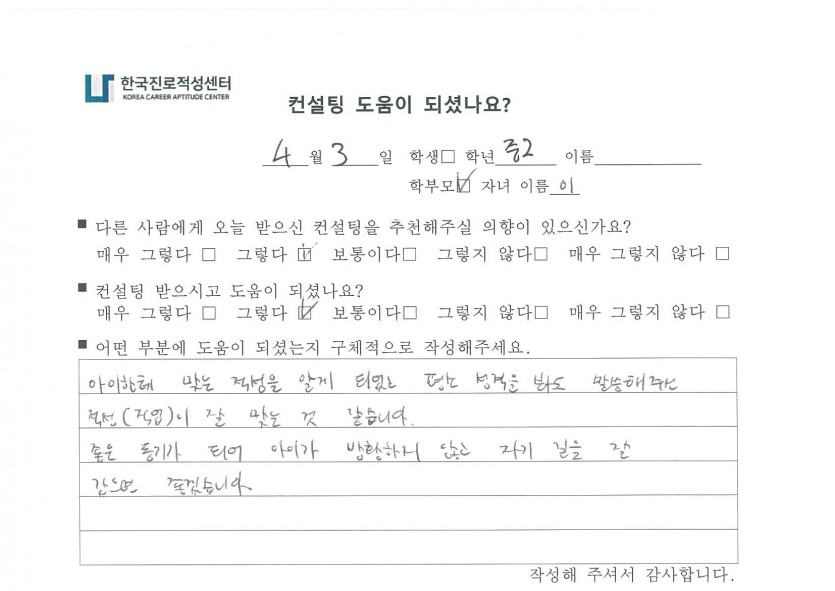 한국진로적성센터
KOREA CAREER APTITUDE CENTER
컨설팅 도움이 되셨나요?
4월 3일 학생□ 학년 중2 이름
학부모☑ 자녀 이름 이
■ 다른 사람에게 오늘 받으신 컨설팅을 추천해주실 의향이 있으신가요?
매우 그렇다 □ 그렇다 ☑ 보통이다□ 그렇지 않다□ 매우 그렇지 않다 □
■ 컨설팅 받으시고 도움이 되셨나요?
매우 그렇다 □ 그렇다 ☑ 보통이다□ 그렇지 않다□ 매우 그렇지 않다 □
■ 어떤 부분에 도움이 되셨는지 구체적으로 작성해주세요.
아이한테 맞는 적성을 알게 되었고 평소 성격을 봐도 말씀해주신
적성(직업)이 잘 맞는 것 같습니다.
좋은 동기가 되어 아이가 방황하지 않고 자기 길을 잘
갔으면 좋겠습니다.
작성해 주셔서 감사합니다.